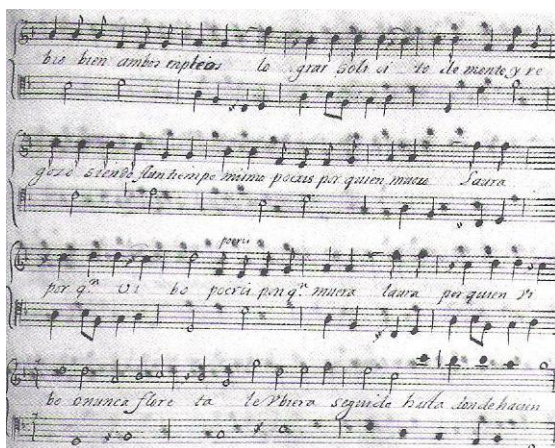 bio bien ambos empleos lo grar soli ci to de monte y re
gozo siendo a un tiempo mismo poeris por quien muera Laura
poeris
por q.n vi bo poeris por q.n muera laura por quien vi
bo o nunca flore ta le ybiera seguido hasta donde hacen